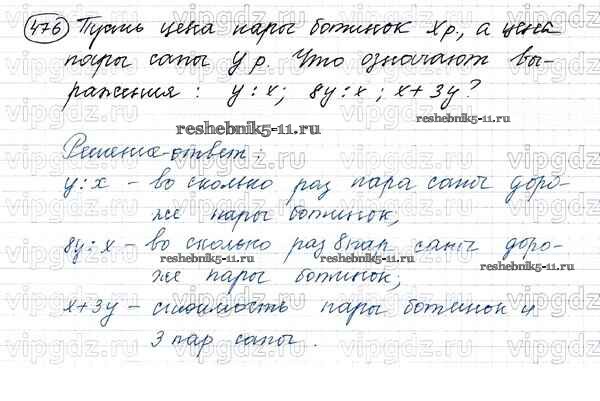 476 Пусть цена пары ботинок х р., а цена
пары сапог у р. Что означают вы-
ражения : у : х ; 8у : х ; х + 3у ?
reshebnik5-11.ru
Решение-ответ :
у : х – во сколько раз пара сапог доро-
же пары ботинок,
8у : х – во сколько раз 8 пар сапог доро-
reshebnik5-11.ru reshebnik5-11.ru
же пары ботинок;
х + 3у – стоимость пары ботинок и
3 пар сапог .
vipgdz.ru